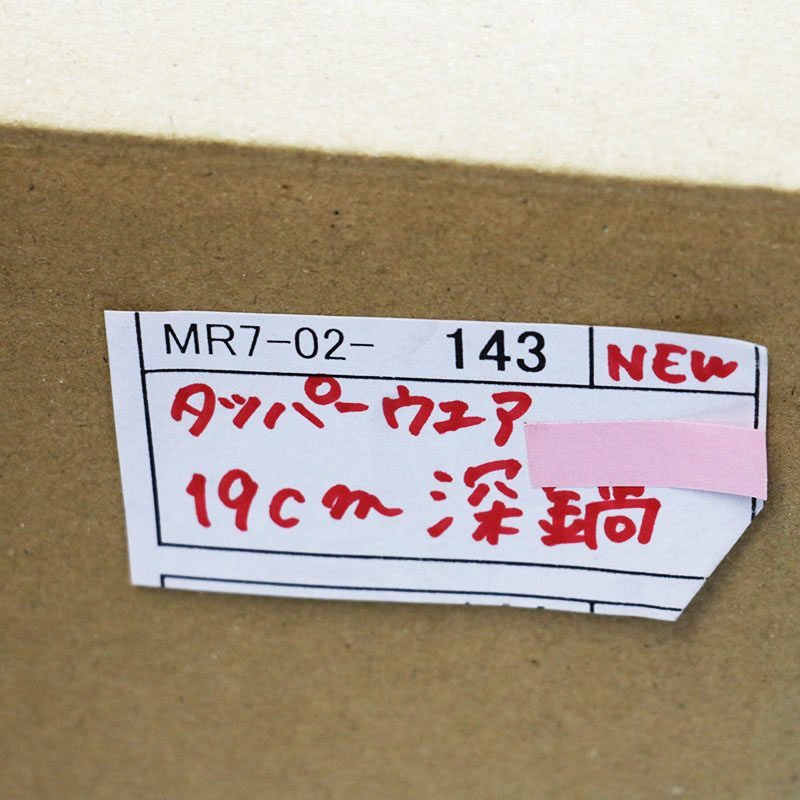 MR7-02- 143 NEW
タッパーウェア
19cm 深鍋